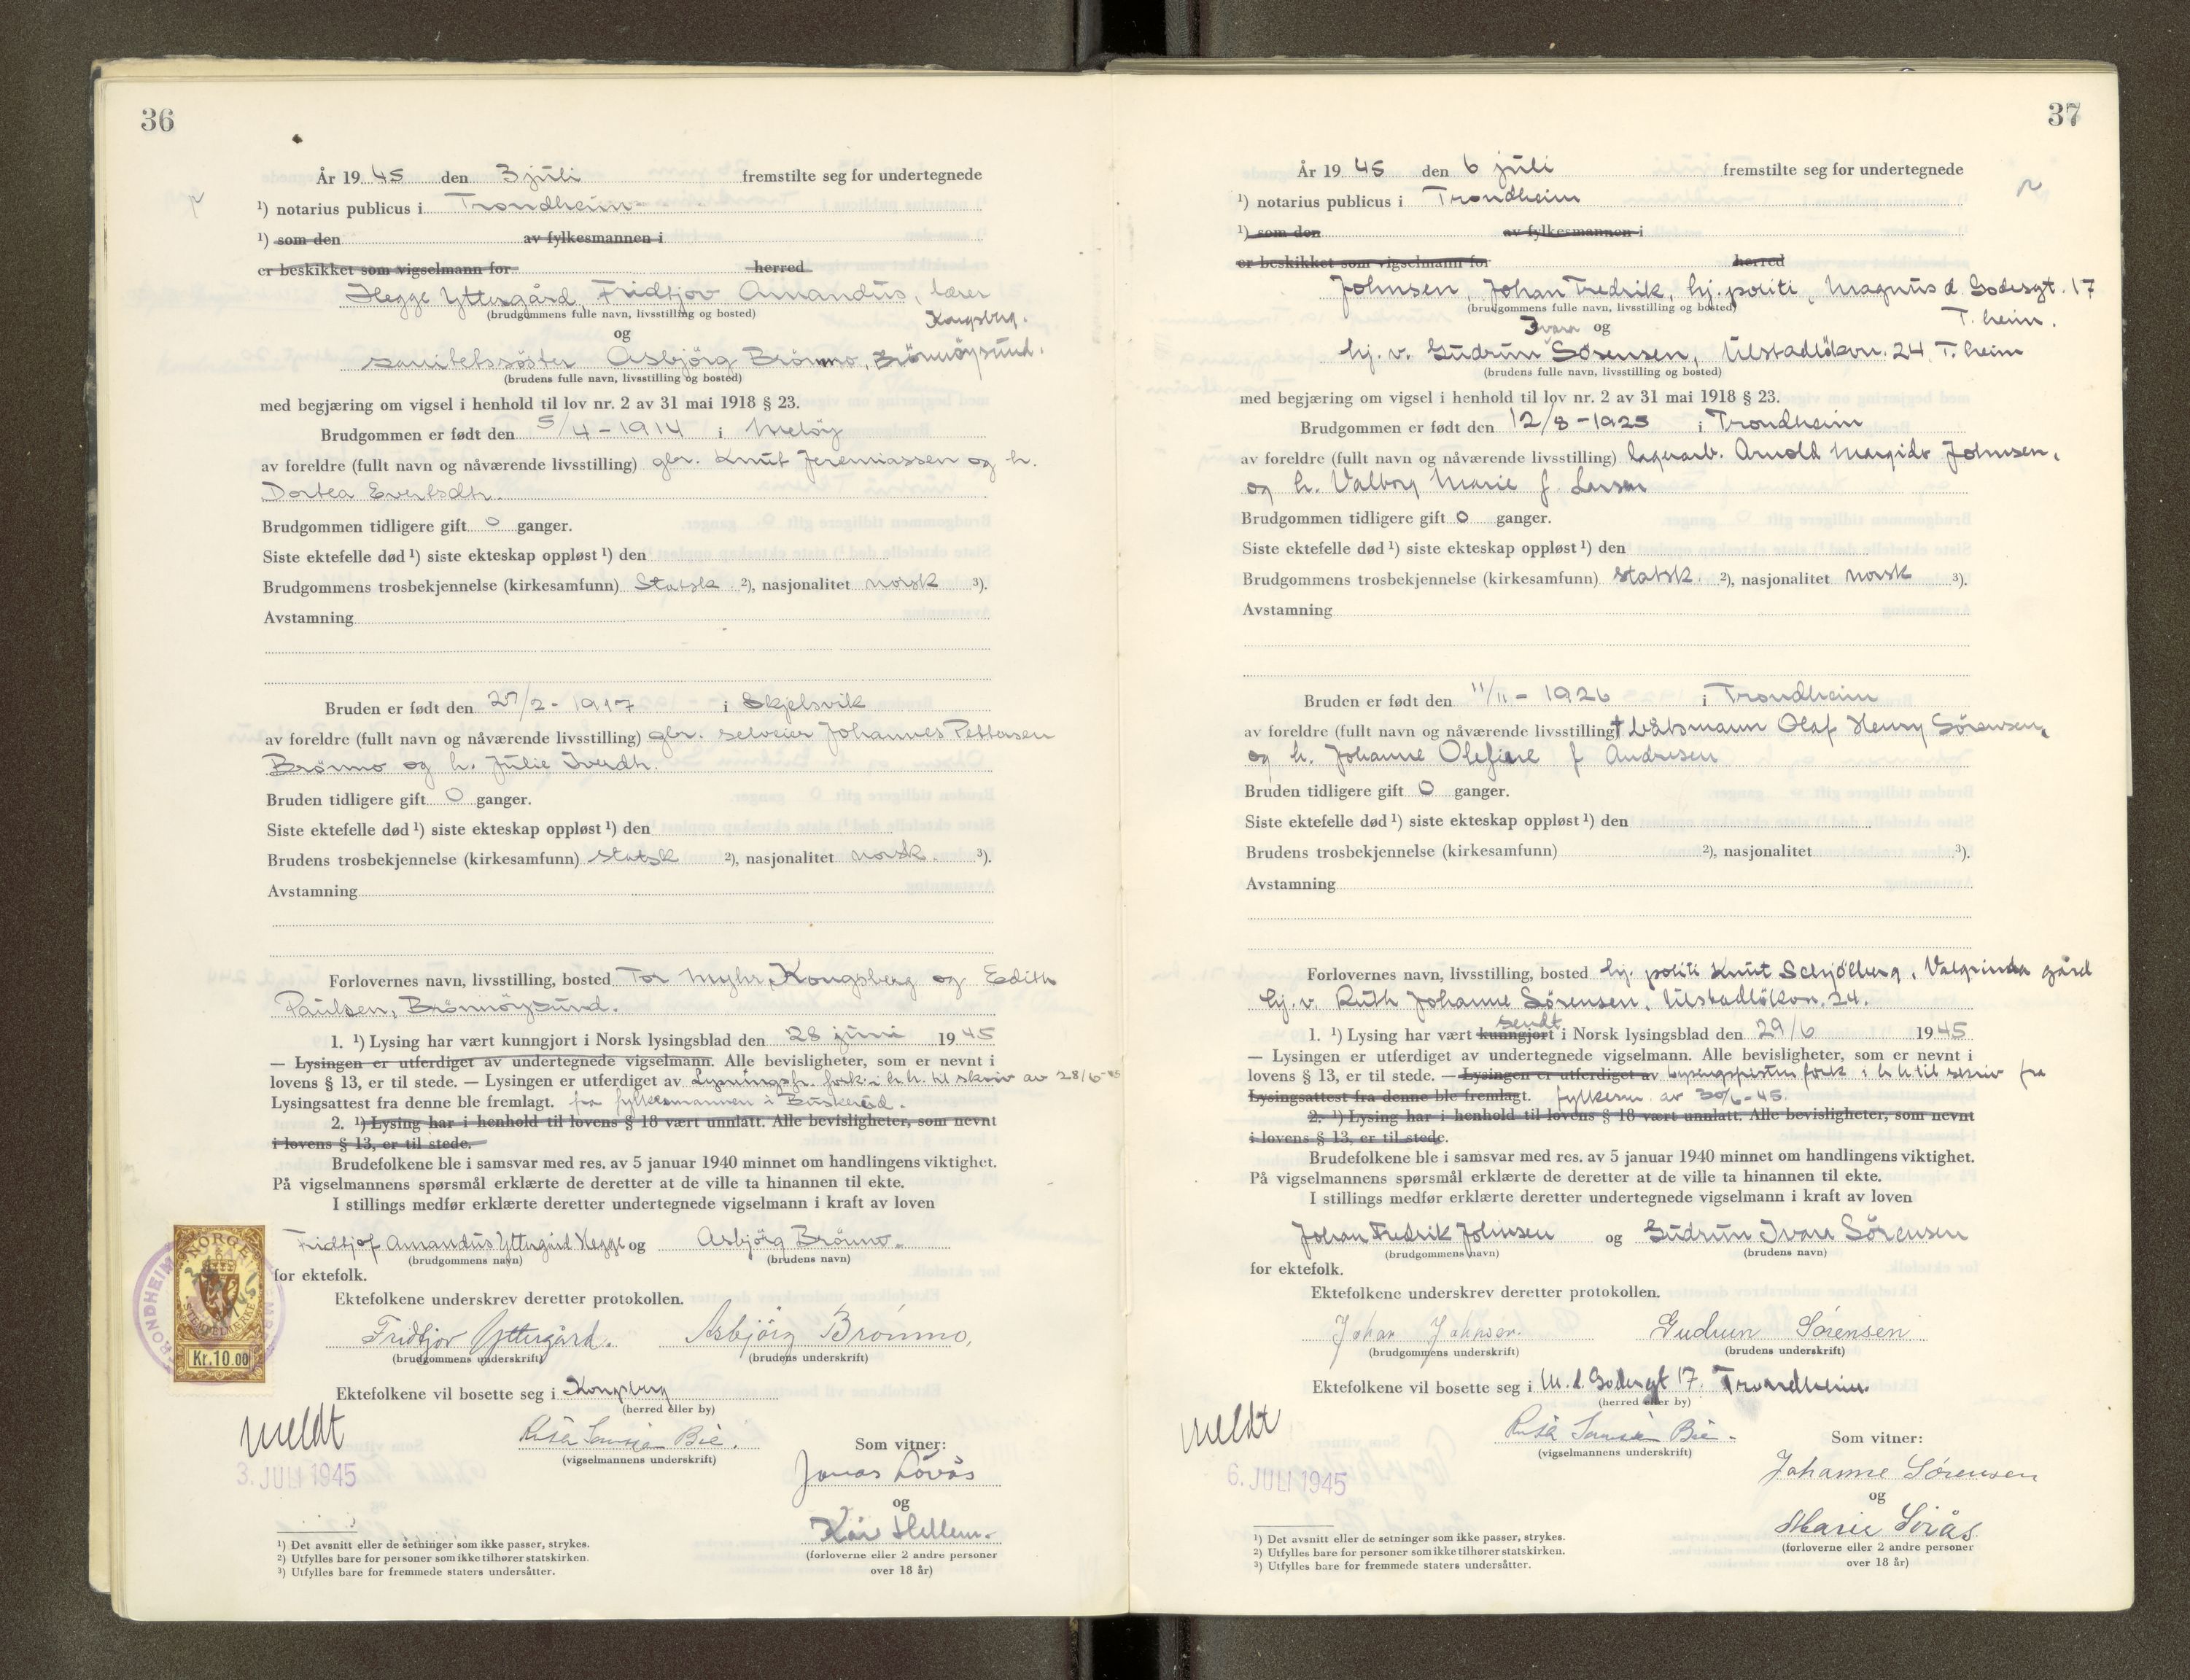 36
År 19 45 den 3 juli fremstilte seg for undertegnede
¹) notarius publicus i Trondheim
¹) som den av fylkesmannen i
er beskikket som vigselmann for herred
Hegge Yttergård, Fridtjov Amandus, lærer
(brudgommens fulle navn, livsstilling og bosted)
Kongsberg.
og
sanitetssöster Asbjörg Brönmo, Brönnöysund.
(brudens fulle navn, livsstilling og bosted)
med begjæring om vigsel i henhold til lov nr. 2 av 31 mai 1918 § 23.
Brudgommen er født den 5/4 - 1914 i Melöy
av foreldre (fullt navn og nåværende livsstilling) gbr. Knut Jeremiassen og h.
Dortea Evertsdtr.
Brudgommen tidligere gift 0 ganger.
Siste ektefelle død ¹) siste ekteskap oppløst ¹) den
Brudgommens trosbekjennelse (kirkesamfunn) Statsk ²), nasjonalitet norsk ³).
Avstamning
Bruden er født den 27/2 - 1917 i Skjelsvik
av foreldre (fullt navn og nåværende livsstilling) gbr. selveier Johannes Pettersen
Brönmo og h. Julie Iverdtr.
Bruden tidligere gift 0 ganger.
Siste ektefelle død ¹) siste ekteskap oppløst ¹) den
Brudens trosbekjennelse (kirkesamfunn) statsk ²), nasjonalitet norsk. ³).
Avstamning
Forlovernes navn, livsstilling, bosted Tor Myhr, Kongsberg og Edith
Paulsen, Brönnöysund.
1. ¹) Lysing har vært kunngjort i Norsk lysingsblad den 28 juni 19 45
— Lysingen er utferdiget av undertegnede vigselmann. Alle bevisligheter, som er nevnt i
lovens § 13, er til stede. — Lysingen er utferdiget av Lysningsfr. fork. i h.h. til skriv av 28/6-45
Lysingsattest fra denne ble fremlagt. fra fylkesmannen i Buskerud.
2. ¹) Lysing har i henhold til lovens § 18 vært unnlatt. Alle bevisligheter, som nevnt
i lovens § 13, er til stede.
Brudefolkene ble i samsvar med res. av 5 januar 1940 minnet om handlingens viktighet.
På vigselmannens spørsmål erklærte de deretter at de ville ta hinannen til ekte.
I stillings medfør erklærte deretter undertegnede vigselmann i kraft av loven
Fridtjof Amandus Yttergård Hegge og Asbjörg Brönmo.
(brudgommens navn) (brudens navn)
for ektefolk.
Ektefolkene underskrev deretter protokollen.
Fridtjov Yttergård. Asbjörg Brönmo,
(brudgommens underskrift) (brudens underskrift)
NORGE
STEMPELMERKE
Kr.10.00
TRONDHEIM
Ektefolkene vil bosette seg i Kongsberg
(herred eller by)
meldt
3. JULI 1945
(vigselmannens underskrift)
Som vitner:
Jonas Lövås
og
Kåre Hellem.
(forloverne eller 2 andre personer
over 18 år)
¹) Det avsnitt eller de setninger som ikke passer, strykes.
²) Utfylles bare for personer som ikke tilhører statskirken.
³) Utfylles bare for fremmede staters undersåtter.
37
År 19 45 den 6 juli fremstilte seg for undertegnede
¹) notarius publicus i Trondheim
¹) som den av fylkesmannen i
er beskikket som vigselmann for herred
Johnsen, Johan Fredrik, hj. politi, Magnus d. Godesgt. 17
(brudgommens fulle navn, livsstilling og bosted)
T.heim.
Ivara og
hj. v. Gudrun Sörensen, Ulstadlökvn. 24 T.heim
(brudens fulle navn, livsstilling og bosted)
med begjæring om vigsel i henhold til lov nr. 2 av 31 mai 1918 § 23.
Brudgommen er født den 12/8 - 1925 i Trondheim
av foreldre (fullt navn og nåværende livsstilling) lagerarb. Arnold Margido Johnsen,
og h. Valborg Marie f. Larsen
Brudgommen tidligere gift 0 ganger.
Siste ektefelle død ¹) siste ekteskap oppløst ¹) den
Brudgommens trosbekjennelse (kirkesamfunn) statsk. ²), nasjonalitet norsk ³).
Avstamning
Bruden er født den 11/11 - 1926 i Trondheim
av foreldre (fullt navn og nåværende livsstilling) † båtsmann Olaf Henry Sörensen,
og h. Johanne Olefine f Andresen
Bruden tidligere gift 0 ganger.
Siste ektefelle død ¹) siste ekteskap oppløst ¹) den
Brudens trosbekjennelse (kirkesamfunn) ²), nasjonalitet ³).
Avstamning
Forlovernes navn, livsstilling, bosted hj. politi Knut Schjölberg, Valgrinda gård
hj. v. Ruth Johanne Sörensen, Ulstadlökvn. 24.
sendt
1. ¹) Lysing har vært kunngjort i Norsk lysingsblad den 29/6 19 45
— Lysingen er utferdiget av undertegnede vigselmann. Alle bevisligheter, som er nevnt i
lovens § 13, er til stede. — Lysingen er utferdiget av Lysingsfristen fork i h h til skriv fra
Lysingsattest fra denne ble fremlagt. fylkesm. av 30/6-45.
2. ¹) Lysing har i henhold til lovens § 18 vært unnlatt. Alle bevisligheter, som nevnt
i lovens § 13, er til stede.
Brudefolkene ble i samsvar med res. av 5 januar 1940 minnet om handlingens viktighet.
På vigselmannens spørsmål erklærte de deretter at de ville ta hinannen til ekte.
I stillings medfør erklærte deretter undertegnede vigselmann i kraft av loven
Johan Fredrik Johnsen og Gudrun Ivara Sörensen
(brudgommens navn) (brudens navn)
for ektefolk.
Ektefolkene underskrev deretter protokollen.
Johan Johnsen. Gudrun Sörensen
(brudgommens underskrift) (brudens underskrift)
Ektefolkene vil bosette seg i M. d. Godesgt 17. Trondheim.
(herred eller by)
meldt
6. JULI 1945
(vigselmannens underskrift)
Som vitner:
Johanne Sörensen
og
Marie Sörås
(forloverne eller 2 andre personer
over 18 år)
¹) Det avsnitt eller de setninger som ikke passer, strykes.
²) Utfylles bare for personer som ikke tilhører statskirken.
³) Utfylles bare for fremmede staters undersåtter.